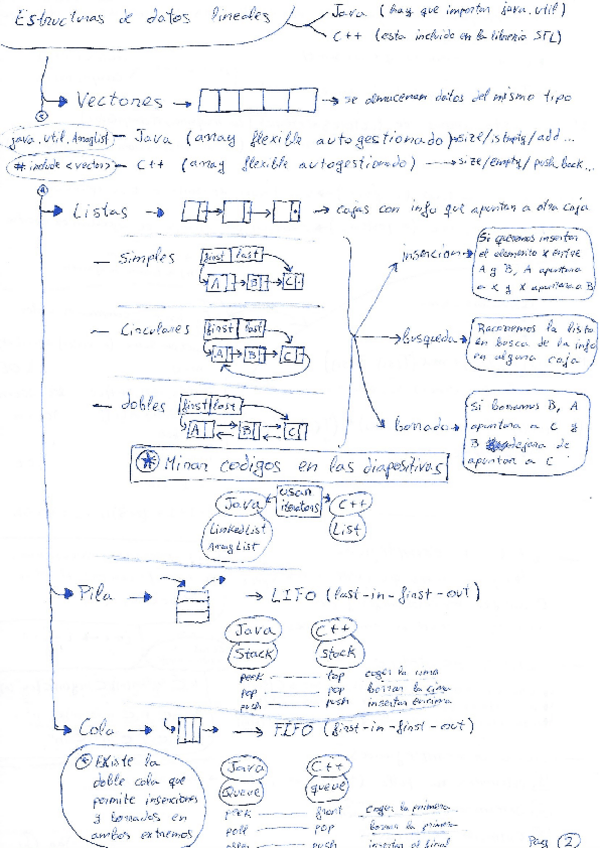 Estructuras de datos lineales
Java (hay que importar java.util)
C++ (esta incluido en la libreria STL)
Vectores
se almacenan datos del mismo tipo
java.util.ArrayList
Java (array flexible autogestionado)
size/isEmpty/add...
#include <vector>
C++ (array flexible autogestionado)
size/empty/push_back...
Listas
cajas con info que apuntan a otra caja
Simples
first last
A B C
insercion
Si queremos insertar
el elemento X entre
A y B, A apuntara
a X y X apuntara a B
Circulares
first last
A B C
busqueda
Recorremos la lista
en busca de la info
en alguna caja
dobles
first last
A B C
borrado
Si borramos B, A
apuntara a C y
B dejara de
apuntar a C
Mirar codigos en las diapositivas
Java
usan
iterators
C++
LinkedList
ArrayList
List
Pila
LIFO (last-in-first-out)
Java C++
Stack stack
peek top coger la cima
pop pop borrar la cima
push push insertar encima
Cola
FIFO (first-in-first-out)
Existe la
doble cola que
permite inserciones
y borrados en
ambos extremos
Java C++
Queue queue
peek front coger la primera
poll pop borrar la primera
push insertar al final
Pag 2